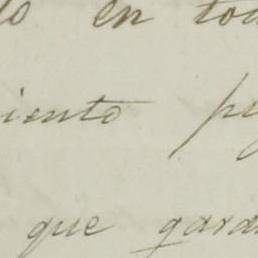 do en tod
iento p
que gara